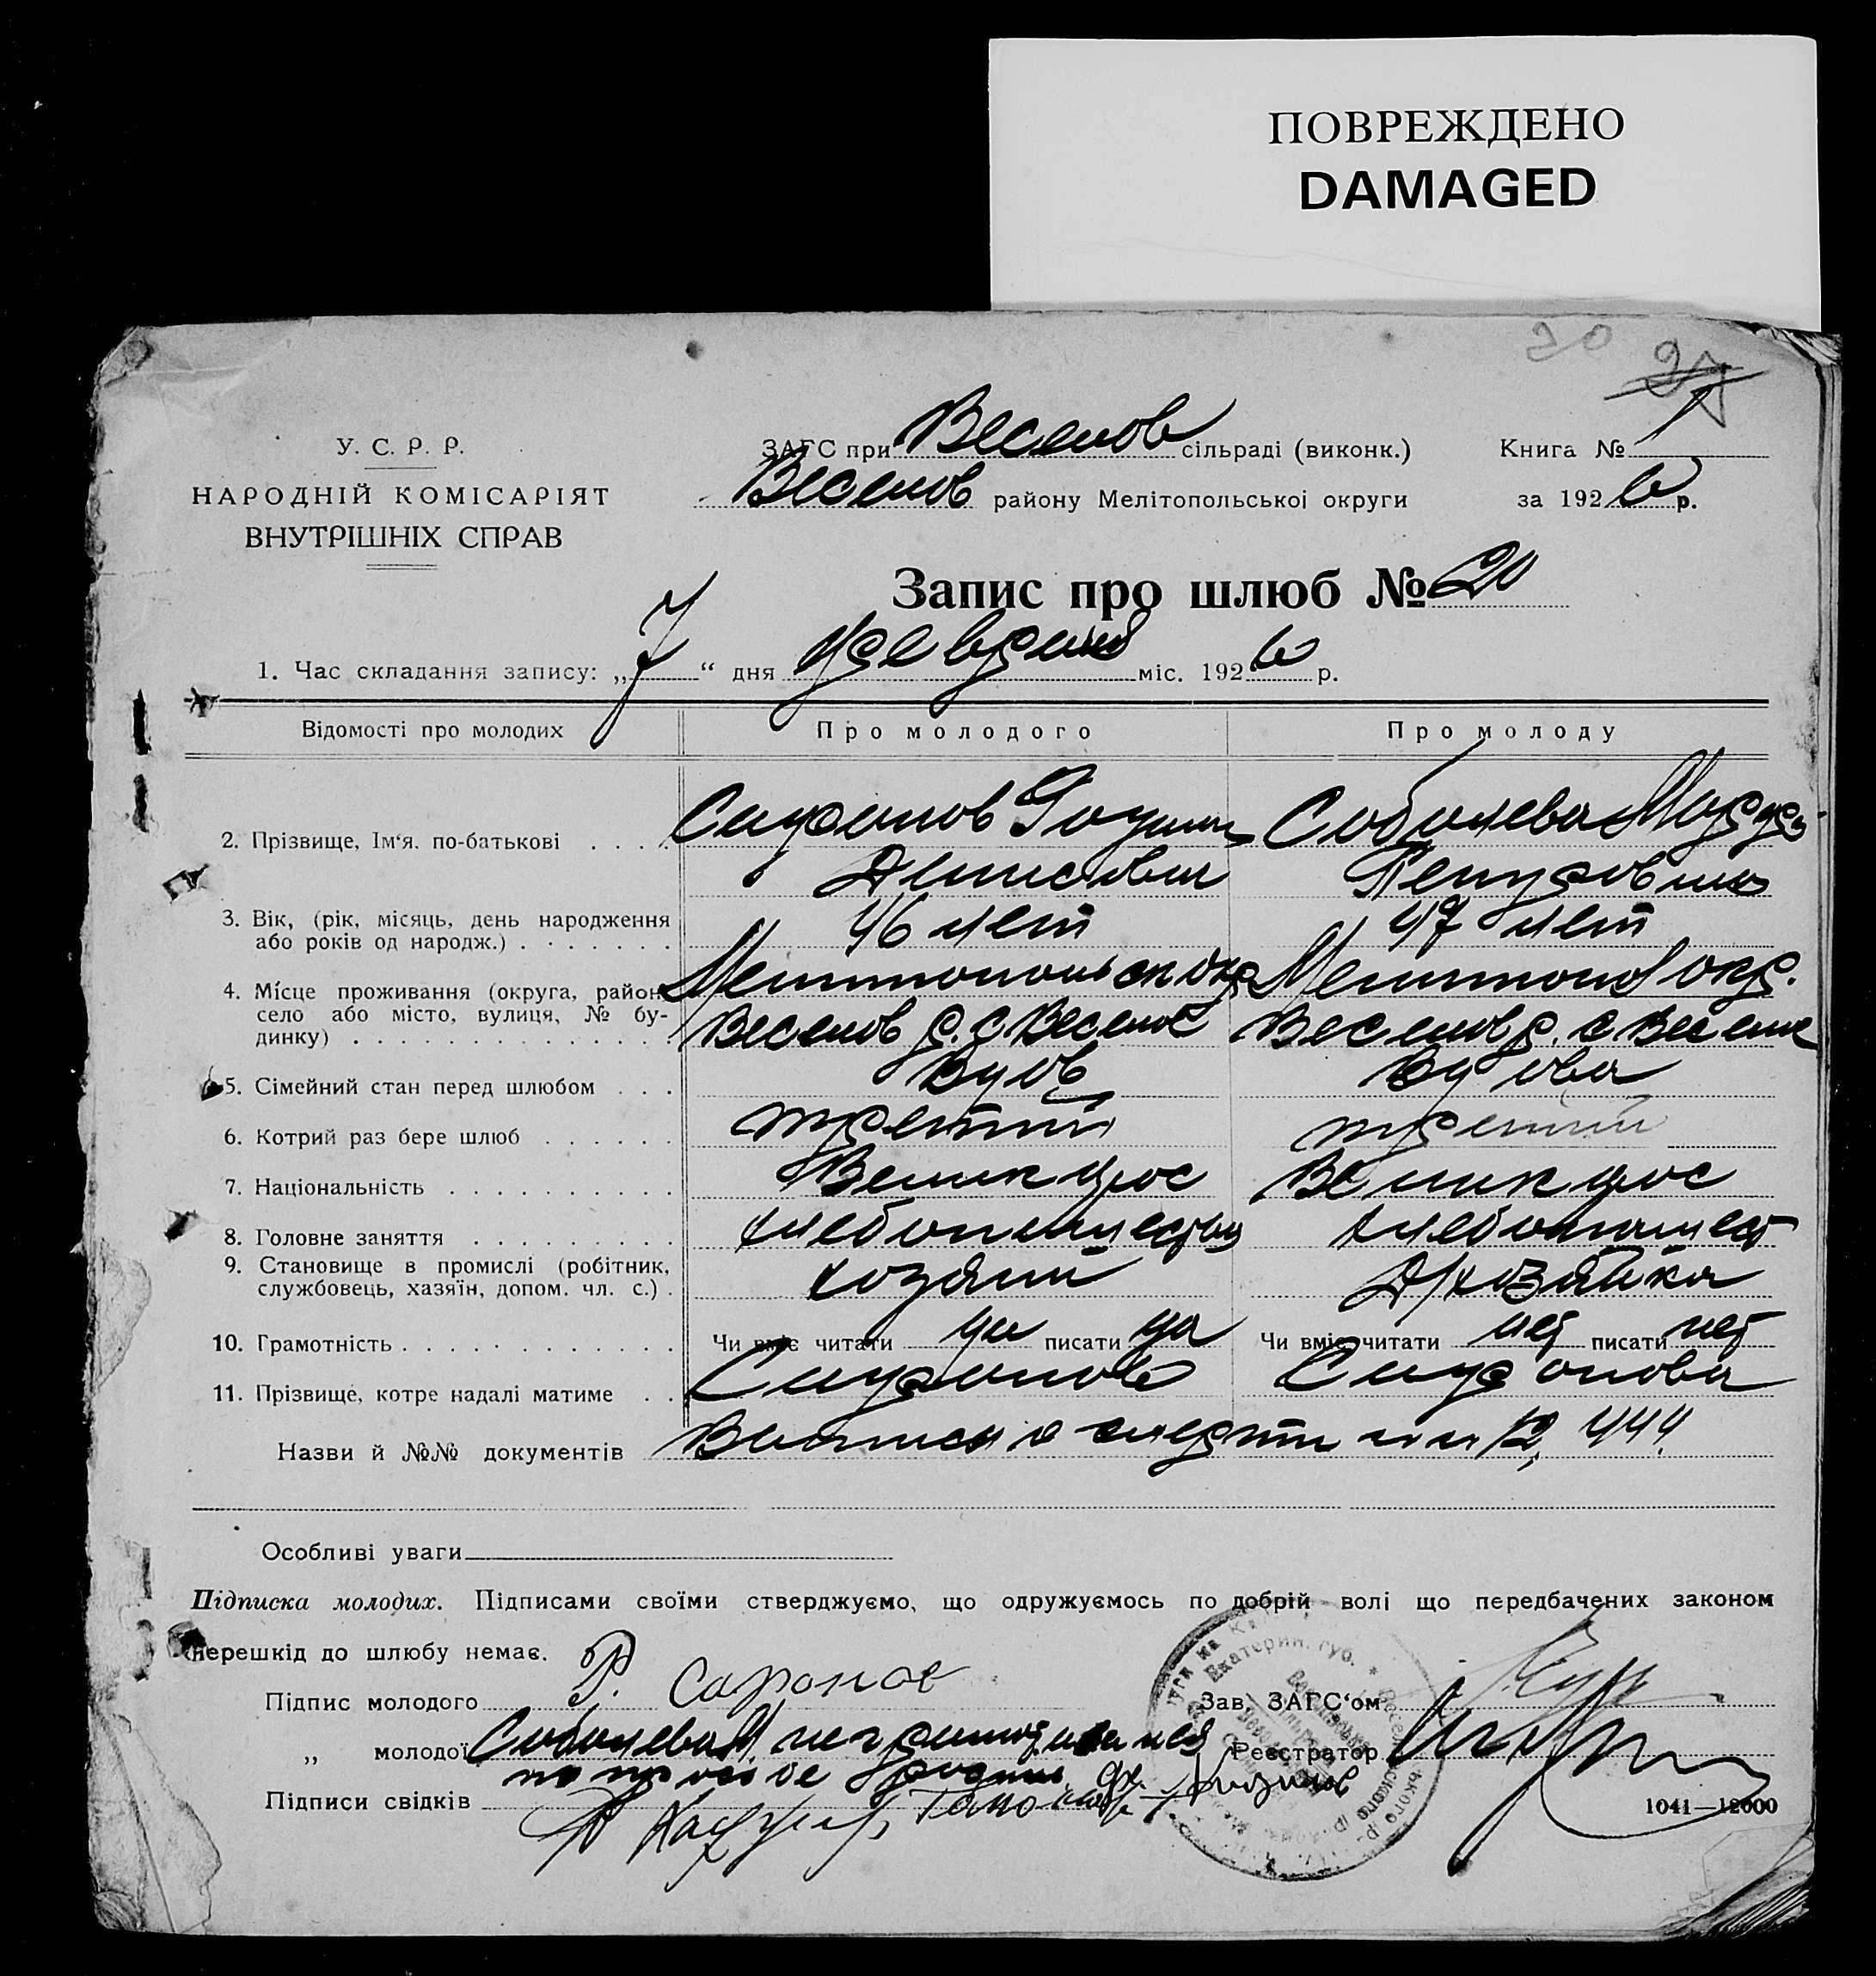 ПОВРЕЖДЕНО
DAMAGED
30
У. С. Р. Р.
НАРОДНІЙ КОМІСАРІЯТ
ВНУТРІШНІХ СПРАВ
ЗАГС при Веселов сільраді (виконк.)
Веселов району Мелітопольської округи
Книга № 1
за 1926 р.
Запис про шлюб № 20
1. Час складання запису: „7“ дня февраля міс. 1926 р.
Відомості про молодих Про молодого Про молоду
2. Прізвище, Ім‘я. по-батькові Сафонов Соболева
Денисович Петровна
3. Вік, (рік, місяць, день народження
або років од народж.) 46 лет 47 лет
4. Місце проживання (округа, район,
село або місто, вулиця, № будинку)
Мелитопольск окр Мелитопол окр.
Веселов р. с Веселое Веселов р. с Веселое
5. Сімейний стан перед шлюбом Вдов Вдова
6. Котрий раз бере шлюб третий третий
7. Національність Великорос Великорос
8. Головне заняття хлебопашество хлебопашест
9. Становище в промислі (робітник,
службовець, хазяїн, допом. чл. с.) хозяин Д/хозяйка
10. Грамотність Чи вміє читати да писати да Чи вміє читати нет писати нет
11. Прізвище, котре надалі матиме Сафонов Сафонова
Назви й №№ документів Выписи о смерти 12, 444
Особливі уваги
Підписка молодих. Підписами своїми стверджуємо, що одружуємось по добрій волі що передбачених законом
перешкід до шлюбу немає.
Підпис молодого Р. Сафонов
„ молодої Соболева М. неграмотная
по просьбе
Підписи свідків
Зав. ЗАГС‘ом
Реєстратор
1041—12000